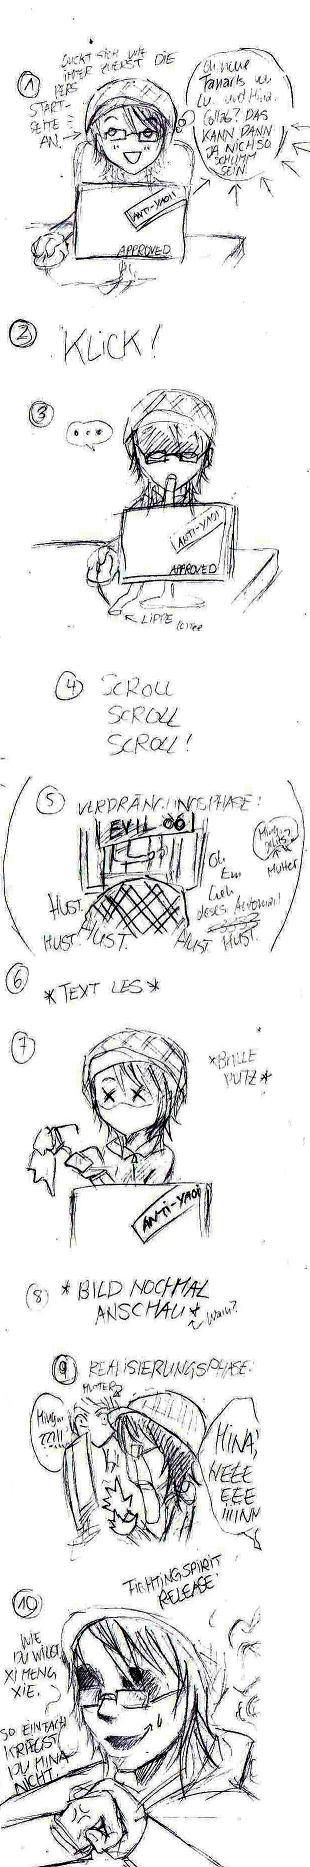 1
GUCKT SICH WIE
IMMER ZUERST DIE
PERS
START-
SEITE
AN.
Oh, neue
Fanarts von
Lu.. und Hina.
Collab? DAS
KANN DANN
JA NICH SO
SCHLIMM
SEIN.
ANTI-YAOI
APPROVED
2
KLICK!
3
...
ANTI-YAOI
APPROVED
LIPPE
4
SCROLL
SCROLL
SCROLL!
5 VERDRÄNGUNGSPHASE:
EVIL
Oh
Ein
dieses
MUTTER
HUST.
HUST. HUST. HUST. HUST.
6
*TEXT LES*
7
*BRILLE
PUTZ*
ANTI-YAOI
8 *BILD NOCHMAL
ANSCHAU*
9 REALISIERUNGSPHASE:
MUTTER
????!!
HINA,
NEEE
EEE
!!!!NN
FIGHTINGSPIRIT
RELEASE
10
WIE
DU WILLST
XI MENG
XIE.
SO EINFACH
KRIEGST
DU HINA
NICHT.